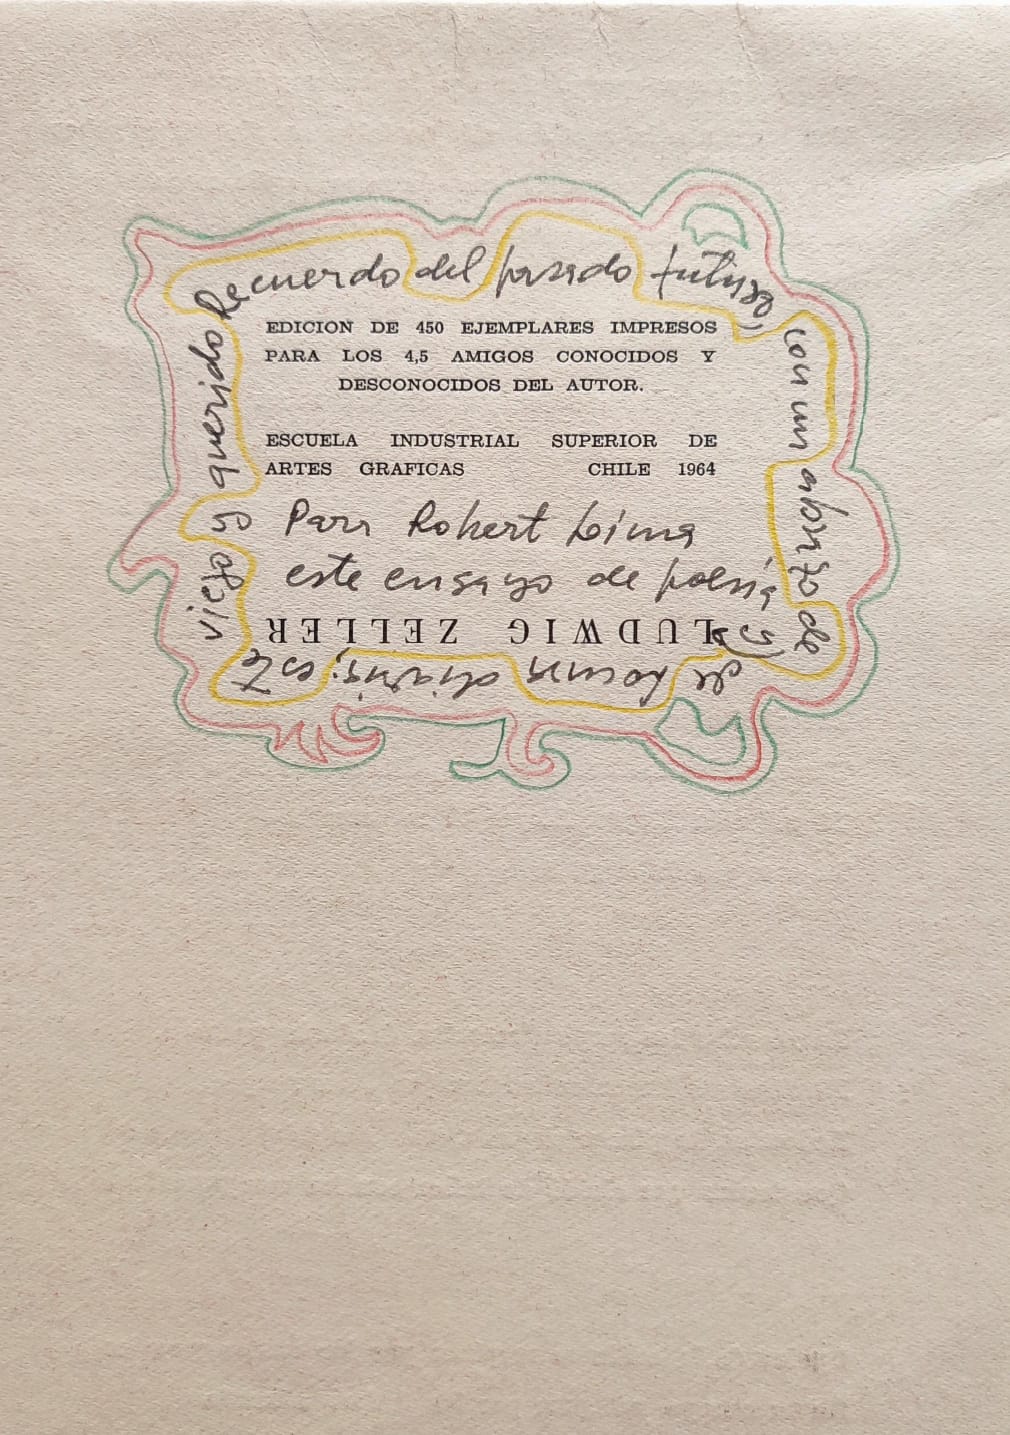 EDICION DE 450 EJEMPLARES IMPRESOS
PARA LOS 4,5 AMIGOS CONOCIDOS Y
DESCONOCIDOS DEL AUTOR.
ESCUELA INDUSTRIAL SUPERIOR DE
ARTES GRAFICAS CHILE 1964
Para Robert Lima
este ensayo de poesía y
de locura diaria; este
viejo y querido
Recuerdo del pasado futuro,
con un abrazo de
LUDWIG ZELLER